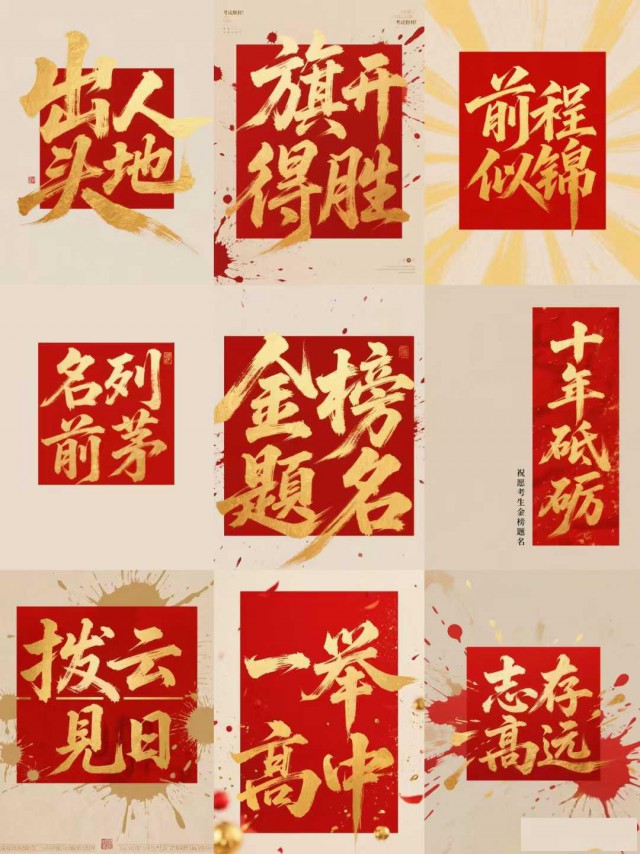 出人
头地
考试胜利!
考试胜利!
旗开
得胜
前程
似锦
名列
前茅
金榜
题名
十年砥砺
祝愿考生金榜题名
拨云
見日
一举
高中
志存
高远